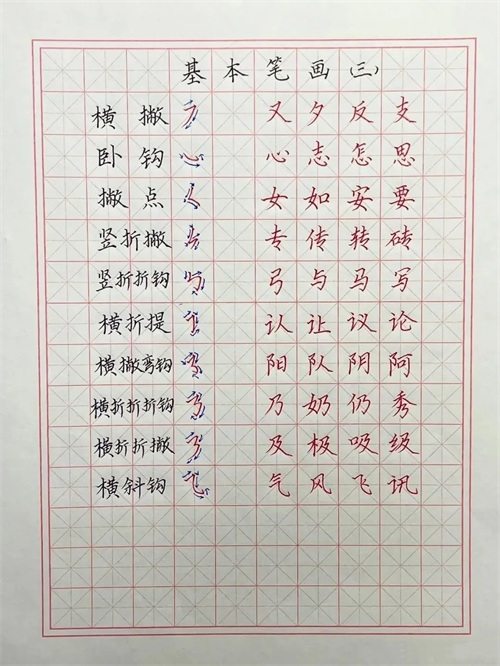 基本笔画(三)
横撇 又夕反支
卧钩 心志怎思
撇点 女如安要
竖折撇 专传转砖
竖折折钩 弓与马写
横折提 认让议论
横撇弯钩 阳队阴阿
横折折折钩 乃奶仍秀
横折折撇 及极吸级
横斜钩 气风飞讯